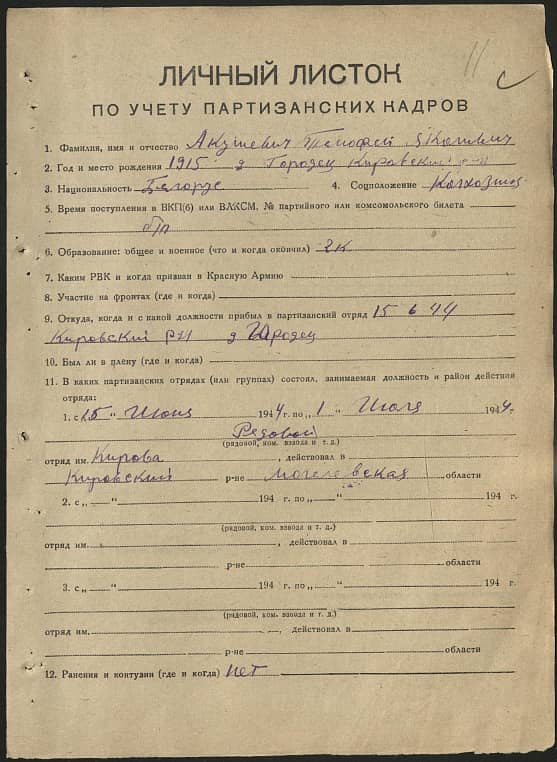 11
ЛИЧНЫЙ ЛИСТОК
ПО УЧЕТУ ПАРТИЗАНСКИХ КАДРОВ
1. Фамилия, имя и отчество Акушевич Тимофей
2. Год и место рождения 1915 д Городец Кировский р-н
3. Национальность Белорус 4. Соцположение Колхозник
5. Время поступления в ВКП(б) или ВЛКСМ, № партийного или комсомольского билета
б/п
6. Образование: общее и военное (что и когда окончил) 2к
7. Каким РВК и когда призван в Красную Армию
8. Участие на фронтах (где и когда)
9. Откуда, когда и с какой должности прибыл в партизанский отряд 15 6 44
Кировский р-н д Городец
10. Был ли в плену (где и когда)
11. В каких партизанских отрядах (или группах) состоял, занимаемая должность и район действия
отряда:
1. с 15 " Июня 1944 г. по „ 1 " Июля 1944 г.
Рядовой
(рядовой, ком. взвода и т. д.)
отряд им. Кирова, действовал в
Кировский р-не Могилевская области
2. с „ " 194 г. по „ " 194 г.
(рядовой, ком. взвода и т. д.)
отряд им. , действовал в
р-не области
3. с „ " 194 г. по „ " 194 г.
(рядовой, ком. взвода и т. д.)
отряд им. , действовал в
р-не области
12. Ранения и контузии (где и когда) нет